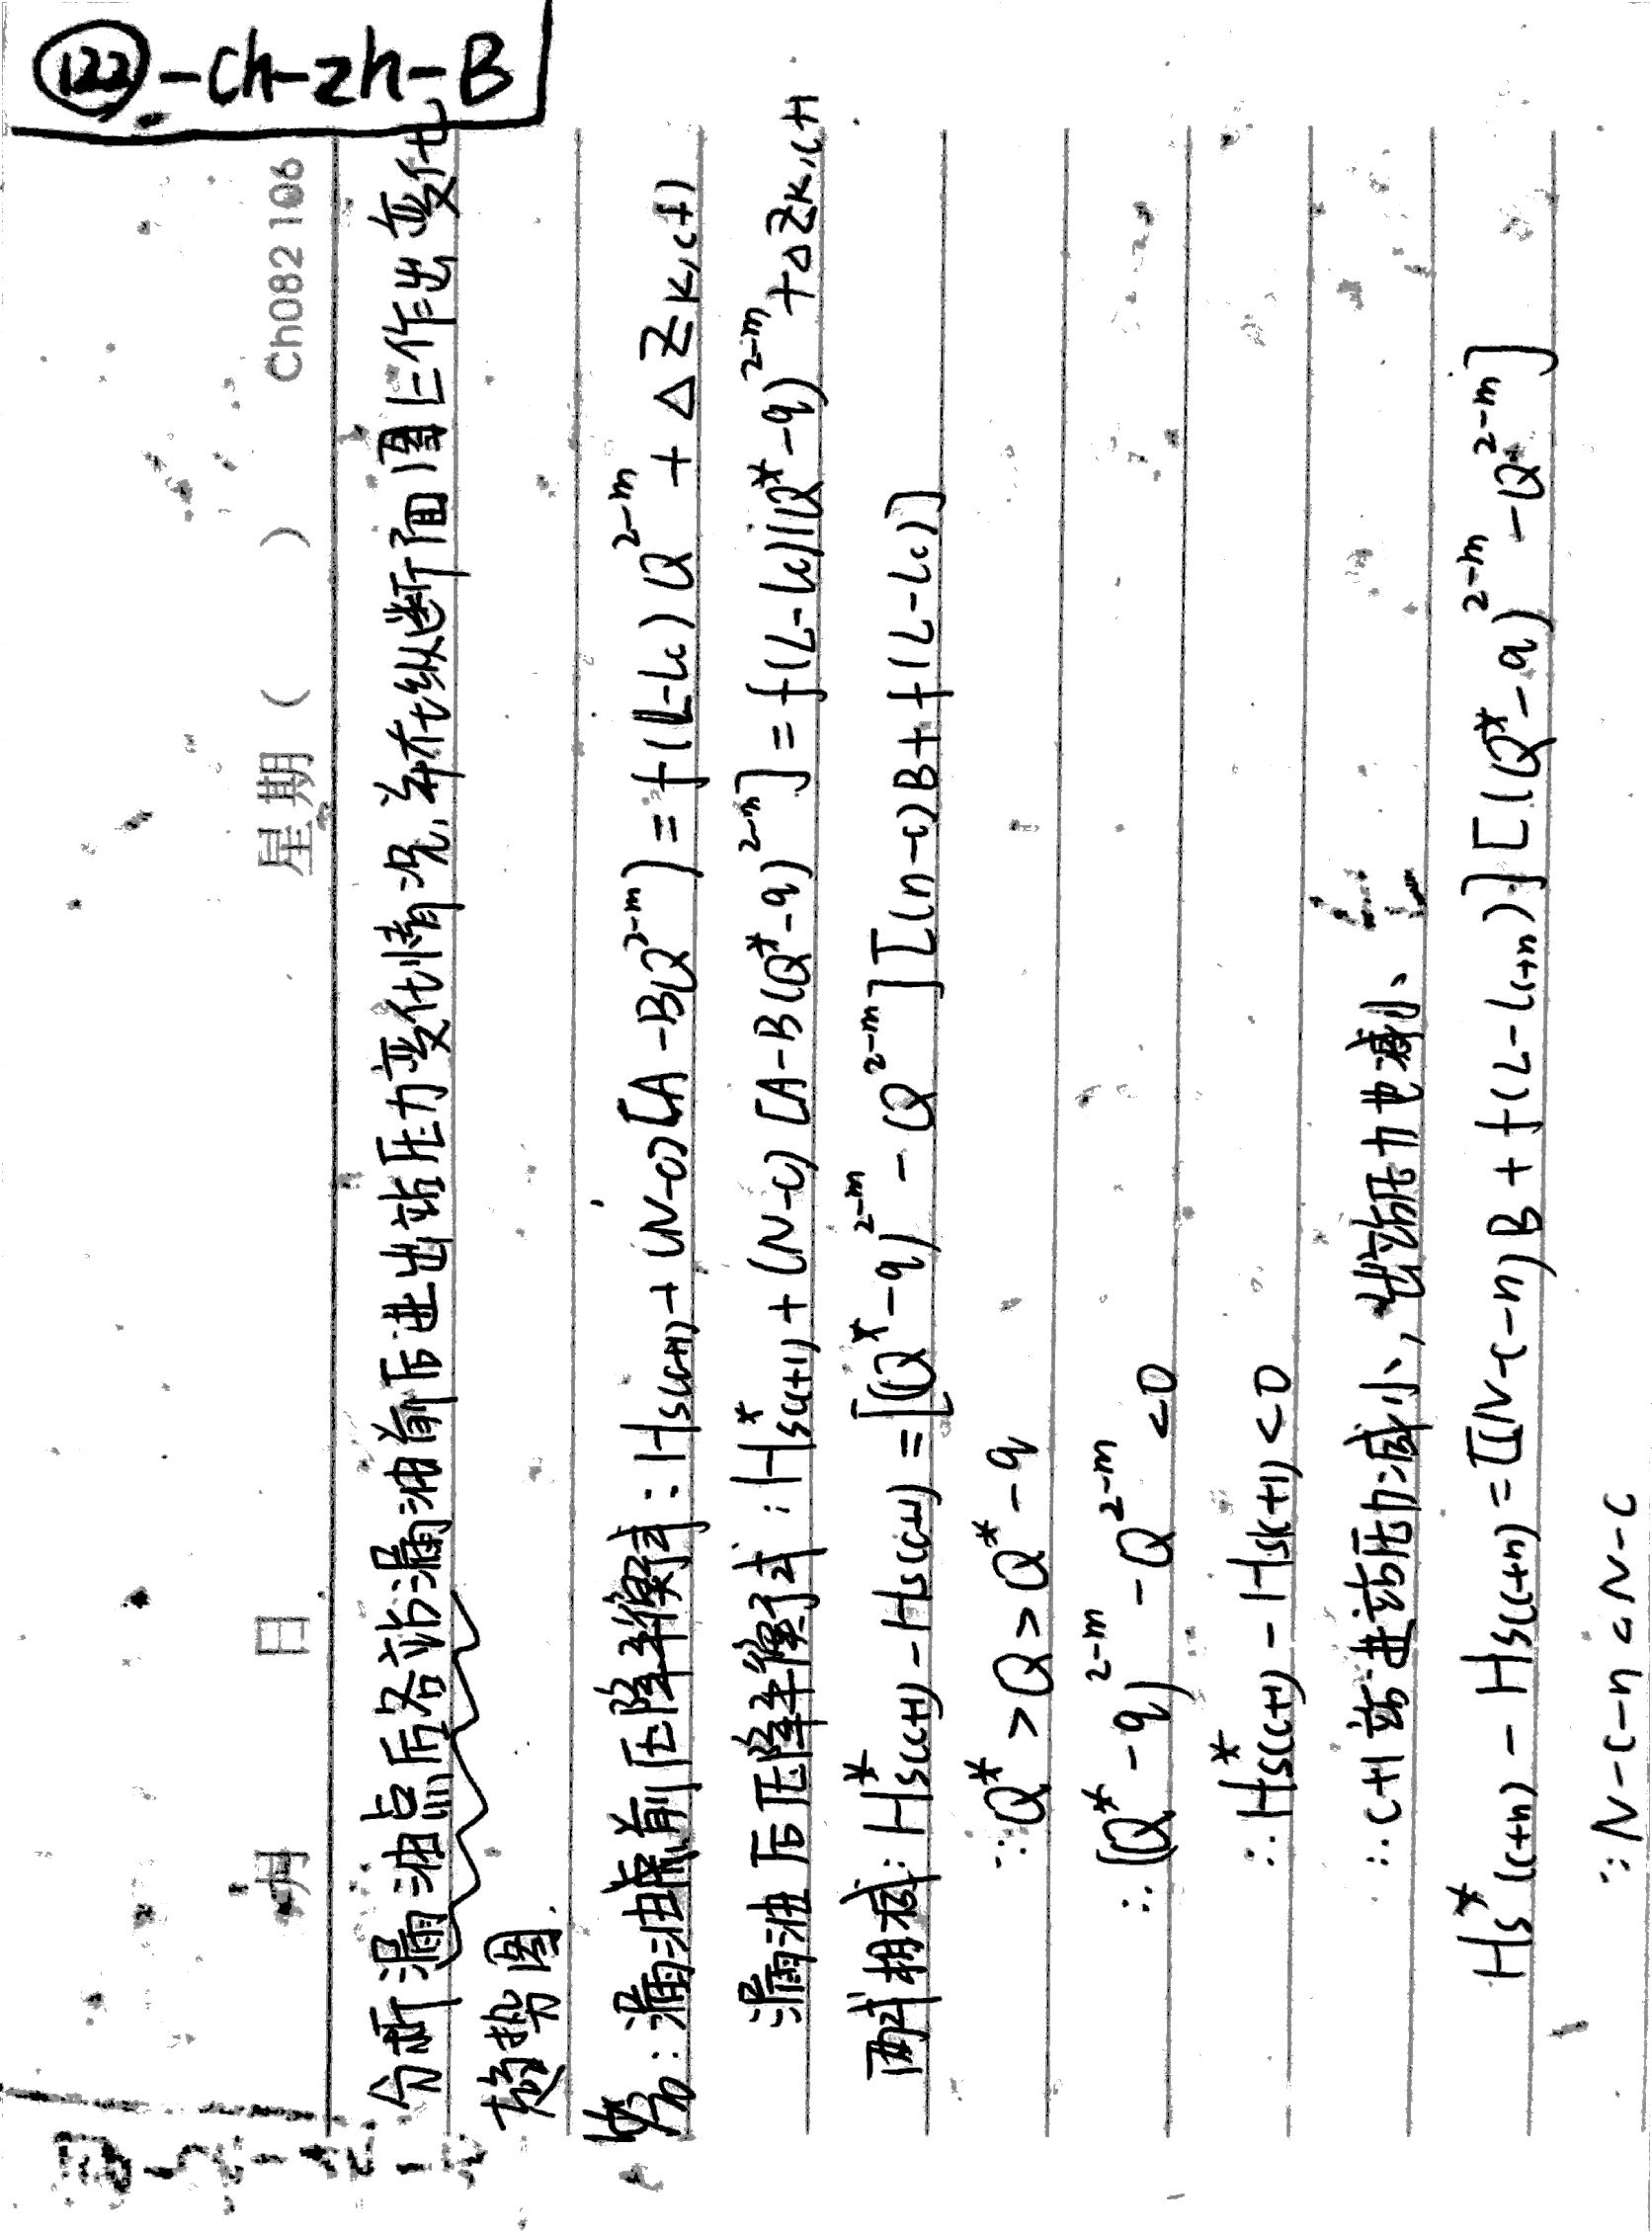 122-ch-zh-B
月 日 星期 ( ) Ch082106
分析漏油点后各站漏油前后进出站压力变化情况,并在纵断面图上作出变化
趋势图.
答:漏油点前压降平衡式:Hs(c+1)+(N-c)[A-BQ^{2-m}]=f(L-Lc)Q^{2-m}+△Z_{K,c+1}
漏油后压降平衡式:H*s(c+1)+(N-c)[A-B(Q*-q)^{2-m}]=f(L-Lc)(Q*-q)^{2-m}+△Z_{K,c+1}
两式相减:H*s(c+1)-Hs(c+1)=[(Q*-q)^{2-m}-Q^{2-m}][(n-c)B+f(L-Lc)]
∵Q*>Q>Q*-q
∴(Q*-q)^{2-m}-Q^{2-m}<0
∴H*s(c+1)-Hs(c+1)<0
∴c+1站进站压力减小,出站压力也减小、
Hs*(c+n)-Hs(c+n)=[(N-c-n)B+f(L-L_{c+n})][(Q*-q)^{2-m}-Q^{2-m}]
∵N-c-n<N-c